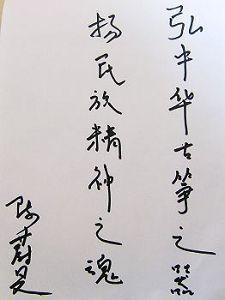 弘中华古筝之器
扬民族精神之魂
陈蔚旻